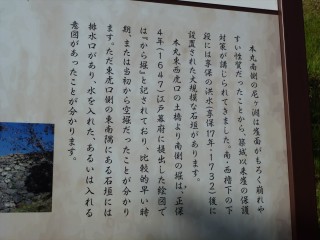 本丸南側の尼ヶ淵は崖面がもろく崩れや
すい性質だったことから、築城以来崖の保護
対策が講じられてきました。南・西櫓下の下
段には享保の洪水（享保17年・1732）後に
設置された大規模な石垣があります。
本丸東西虎口の土橋より南側の堀は、正保
4年（1647）江戸幕府に提出した絵図で
は『から堀』と記されており、比較的早い時
期、または当初から空堀だったことが分かり
ます。ただ東虎口側の東南隅にある石垣には
排水口があり、水を入れた、あるいは入れる
意図があったことが分かります。